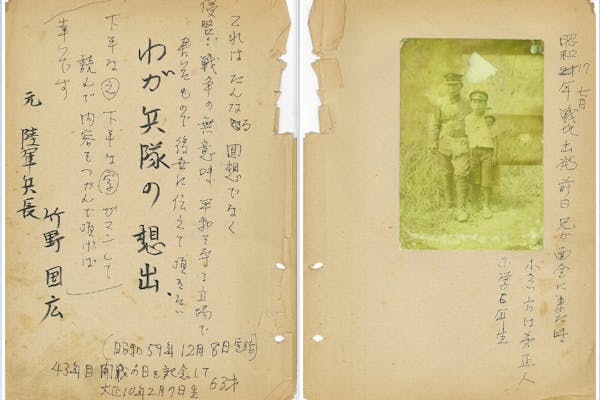 これはたんなる回想でなく
戦争の無意味 平和を守る立場で
書いたもので後世に伝えて頂きたい
わが兵隊の想出、
下手な文 下手な字 ガマンして
読んで内容をつかんで頂けば
幸いです
元 陸軍兵長
竹野国広
(昭和59年12月8日完結)
43年目開戦の日を記念して
大正10年2月7日生 63才
昭和17年七月戦地出発前日 兄が面会に来た時
小さい方は弟正人
小学6年生